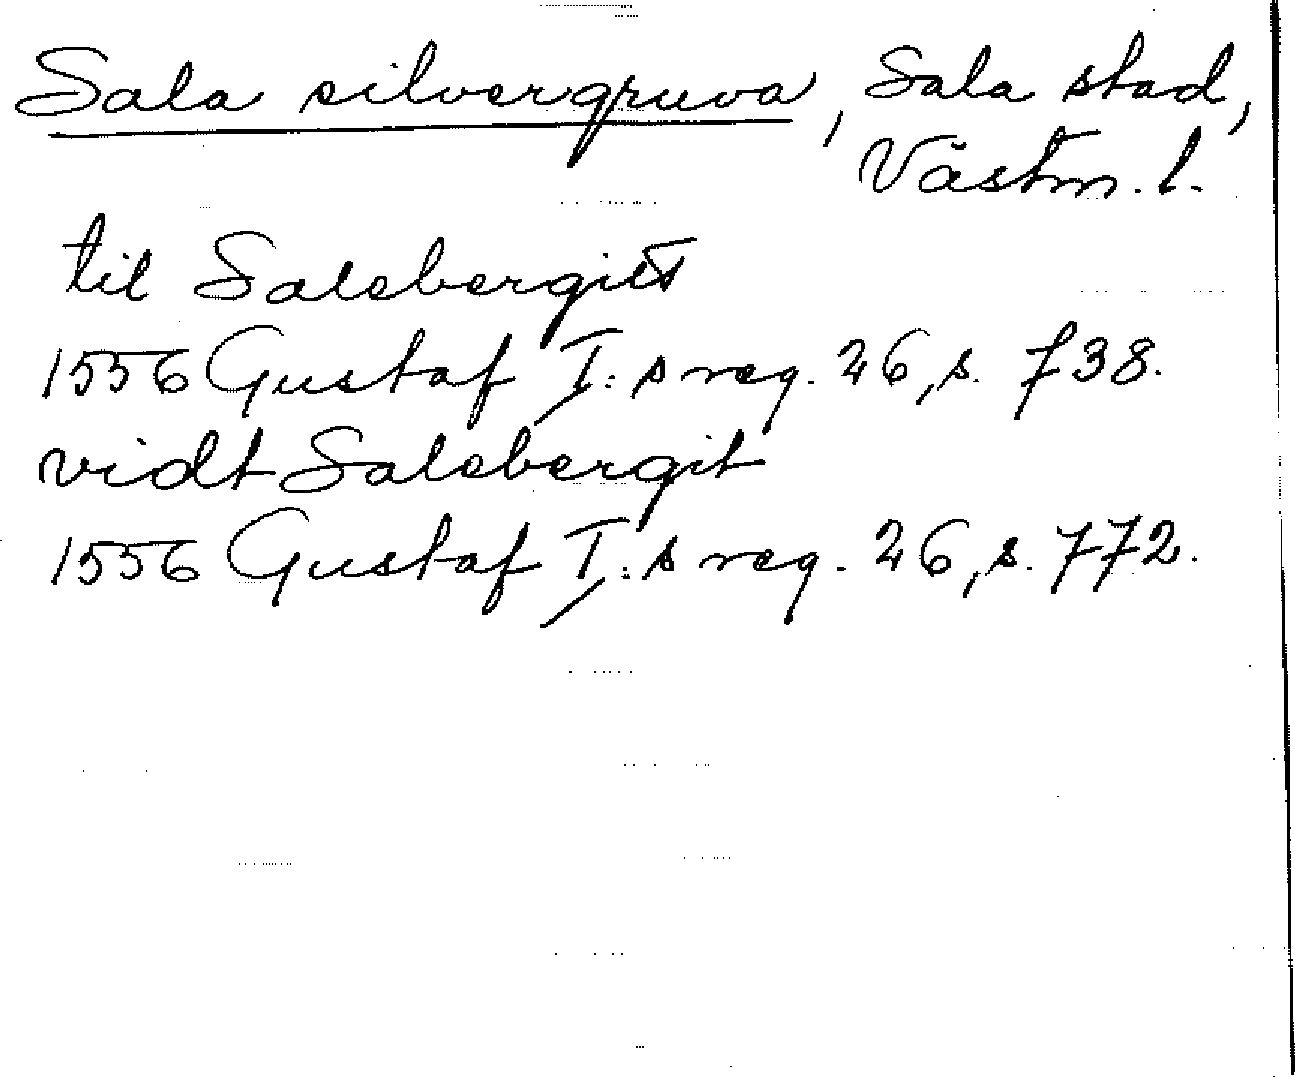 Sala silvergruva, Sala stad,
Västm. l.
til Salebergits
1556 Gustaf I:s reg. 26, s. 738.
vidt Salebergit
1556 Gustaf I:s reg. 26, s. 772.